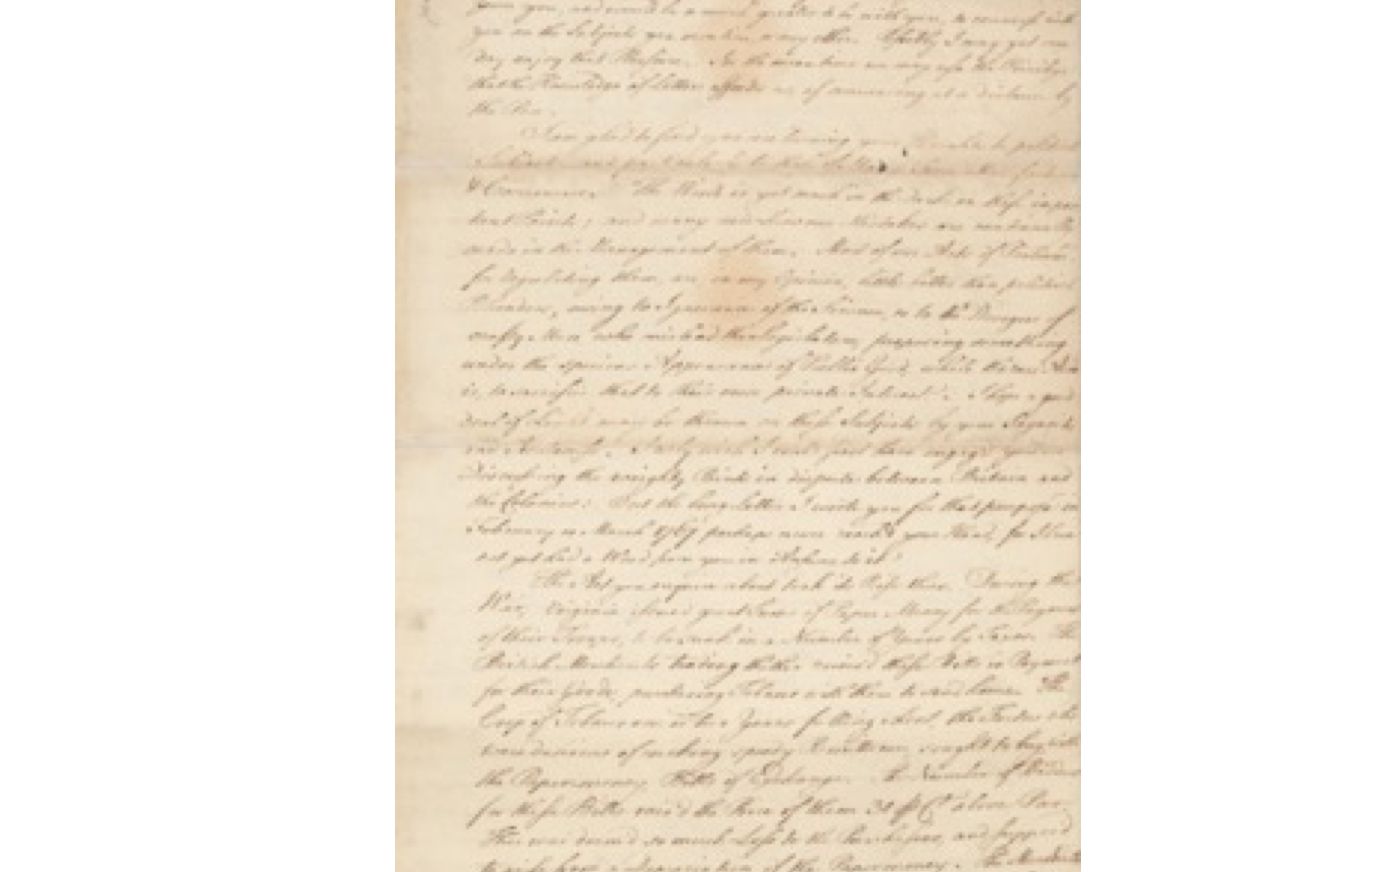 from you, and would be a much greater to be with you, to converse with
you on the Subjects you mention or any other. Possibly I may yet one
day enjoy that Pleasure. In the mean time we may use the Privilege
that the Knowledge of Letters affords us of conversing at a distance by
the Pen.
I am glad to find you are turning your to political
Subjects, and
& Commerce. The World is yet much in the dark on these impor
tant Points; and many mischievous Mistakes are continually
made in the Management of them. Most of our Acts of
for regulating them, are, in my Opinion, little better than political
Blunders, owing to Ignorance of the Science, or to the Designs of
crafty Men who mislead the Legislature, proposing something
under the specious Appearance of Public Good, while the
is, to sacrifice that to their own private Interest. I hope a good
deal of Light may be thrown on these Subjects by your Sagacity
and I only wish I could have engag'd you in
discussing the weighty Points in dispute between Britain and
the Colonies. But the long Letter I wrote you for that purpose in
February or March 1767 perhaps never reach'd your Hand, for I have
not yet had a Word from you in Answer to it.
The Act you enquire about took its Rise thus. During the
War, Virginia issued great Sums of Paper Money for the Payment
of their Troops, to be sunk in a Number of Years by Taxes. The
British Merchants trading thither receiv'd these Bills in Payment
for their Goods, purchasing Tobacco with them to send home. The
Crop of Tobacco one or two Years falling short, the Factors who
were desirous of making speedy Remittance, sought to buy with
the Paper money Bills of Exchange. The Number of Bidders
for these Bills rais'd the Price of them 30 p Ct above Par.
This was deem'd so much Loss to the Purchasers, and suppos'd
to arise from a depreciation of the Paper money. The Merchants